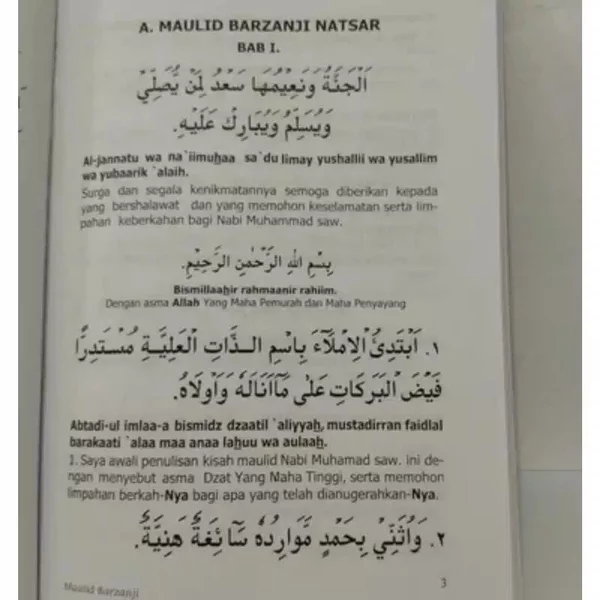 A. MAULID BARZANJI NATSAR
BAB I.
اَلْجَنَّةُ وَنَعِيْمُهَا سَعْدٌ لِمَنْ يُّصَلِّيْ
وَيُسَلِّمُ وَيُبَارِكُ عَلَيْهِ.
Al-jannatu wa na`iimuhaa sa`du limay yushallii wa yusallim
wa yubaarik `alaih.
Surga dan segala kenikmatannya semoga diberikan kepada
yang bershalawat dan yang memohon keselamatan serta lim-
pahan keberkahan bagi Nabi Muhammad saw.
بِسْمِ اللهِ الرَّحْمٰنِ الرَّحِيْمِ.
Bismillaahir rahmaanir rahiim.
Dengan asma Allah Yang Maha Pemurah dan Maha Penyayang
١. اَبْتَدِئُ الْاِمْلَآءَ بِاسْمِ الـذَّاتِ الْعَلِيَّةِ مُسْتَدِرًّا
فَيْضَ الْبَرَكَاتِ عَلٰى مَآاَنَالَهُ وَاَوْلَاهُ.
Abtadi-ul imlaa-a bismidz dzaatil `aliyyah, mustadirran faidlal
barakaati `alaa maa anaa lahuu wa aulaah.
1. Saya awali penulisan kisah maulid Nabi Muhamad saw. ini de-
ngan menyebut asma Dzat Yang Maha Tinggi, serta memohon
limpahan berkah-Nya bagi apa yang telah dianugerahkan-Nya.
٢. وَاُثَنِّيْ بِحَمْدٍ مَّوَارِدُهُ سَآئِغَةٌ هَنِيَّةٌ.
Maulid Barzanji
3